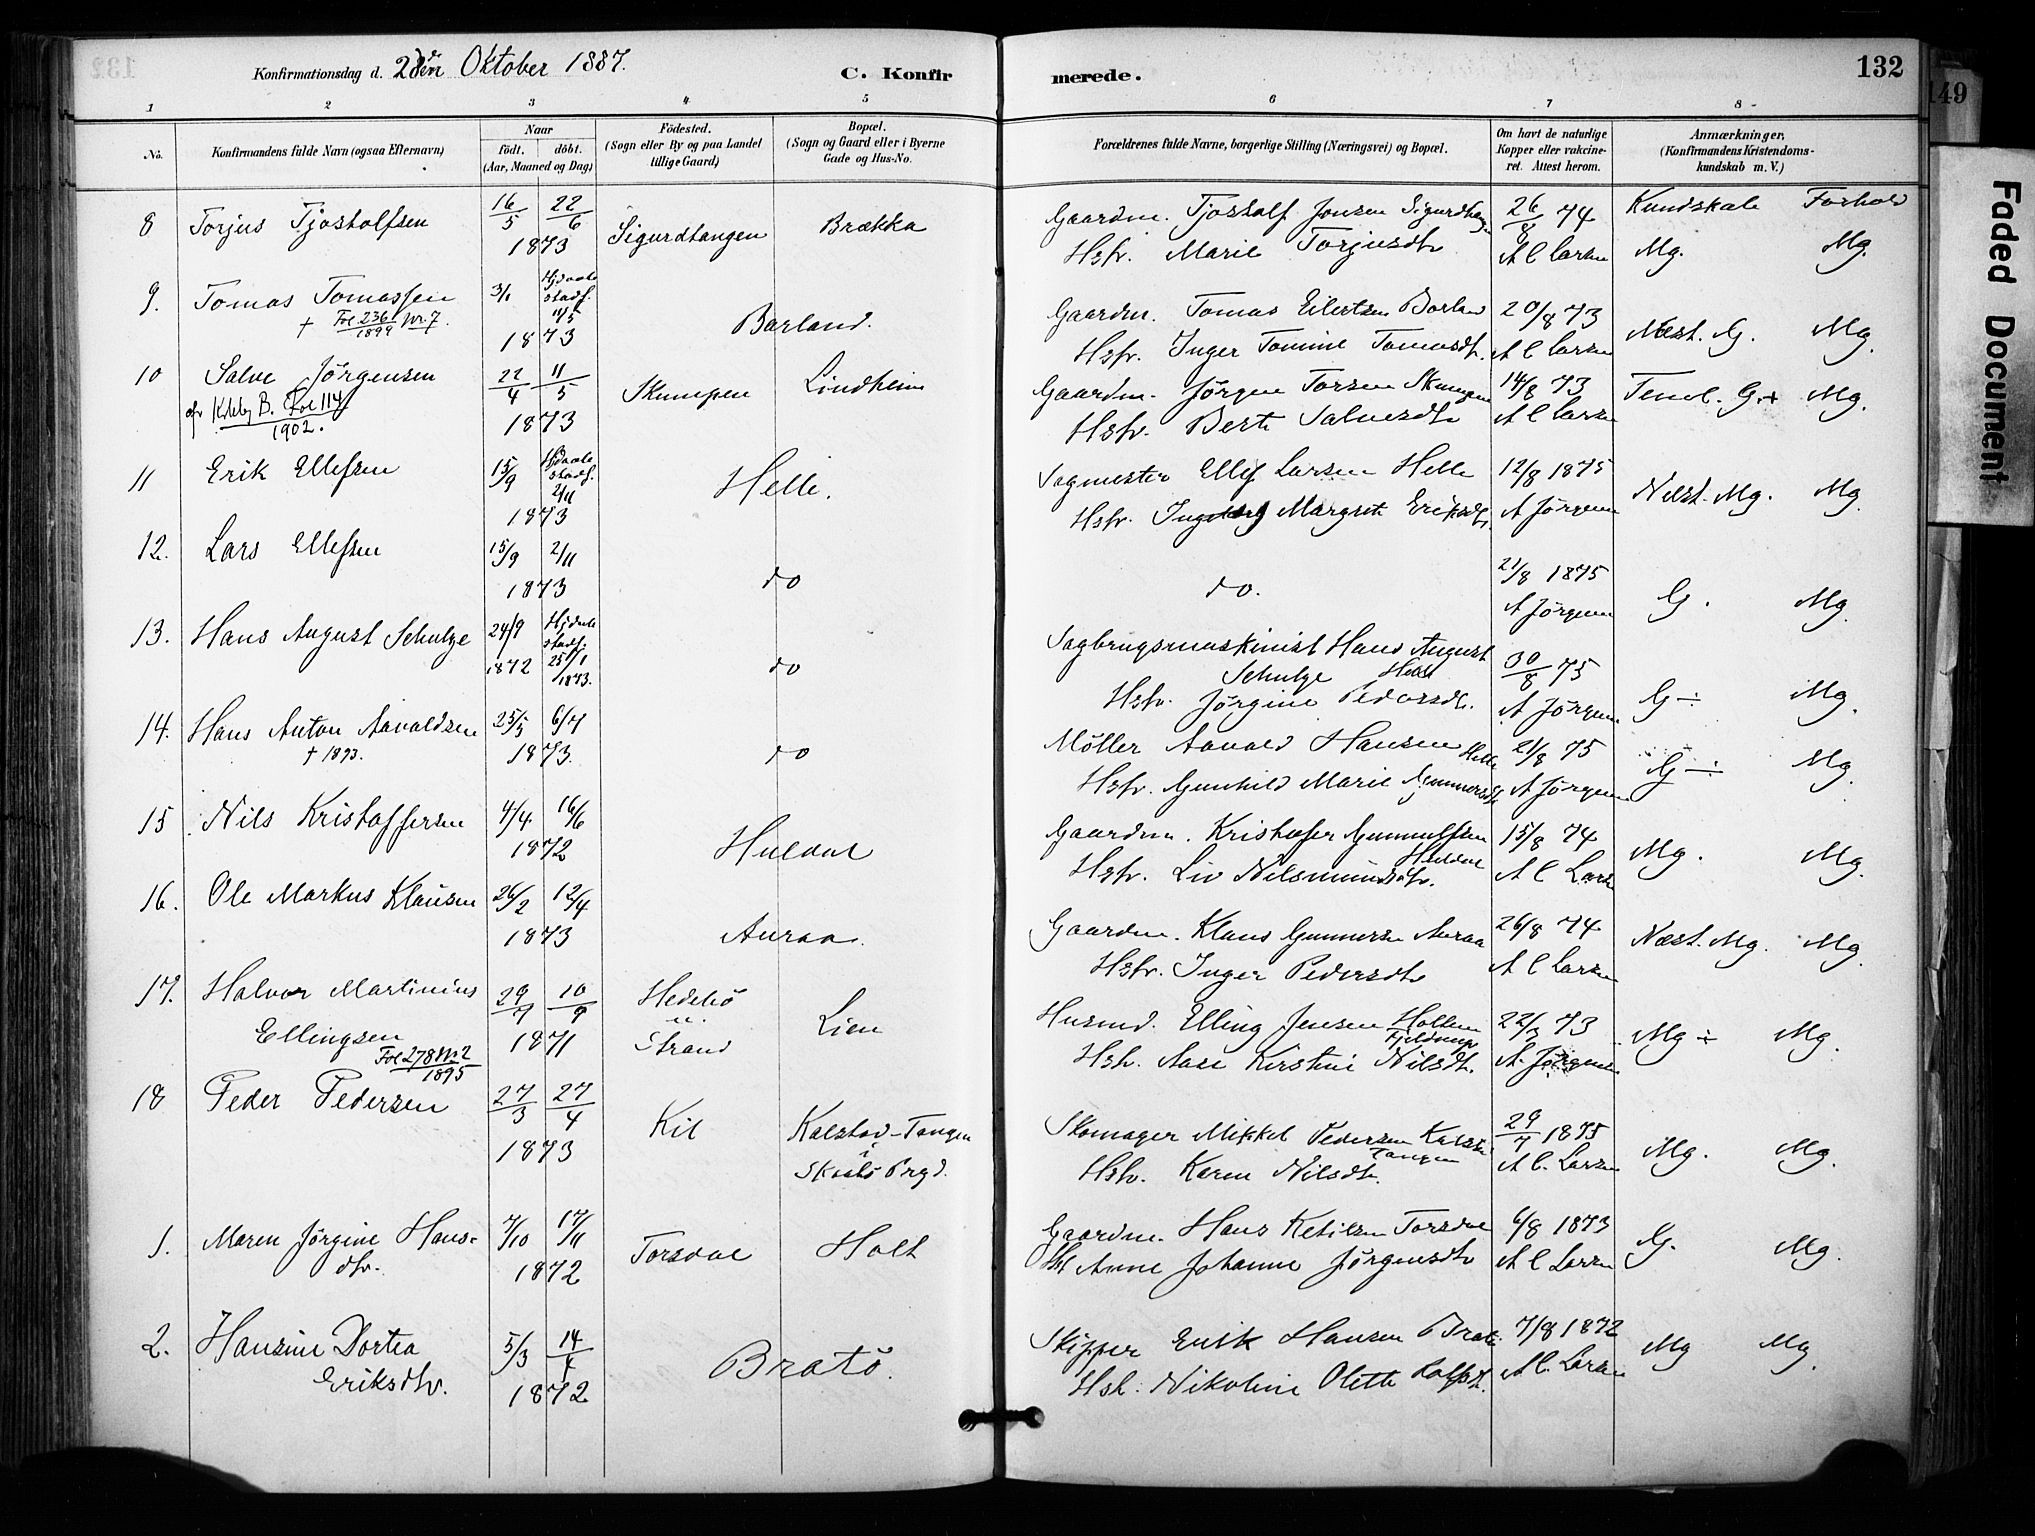 132
Konfirmationsdag d. 2den Oktober 1887.
C. Konfir
merede.
149
Faded Document
1 2 3 4 5 6 7 8
No.
Konfirmandens fulde Navn (ogsaa Efternavn)
Naar
født. døbt.
(Aar, Maaned og Dag)
Fødested.
(Sogn eller By og paa Landet
tillige Gaard)
Bopæl.
(Sogn og Gaard eller i Byerne
Gade og Hus-No.
Forældrenes fulde Navne, borgerlige Stilling (Næringsvei) og Bopæl.
Om havt de naturlige
Kopper eller vakcine-
ret. Attest herom.
Anmærkninger,
(Konfirmandens Kristendoms-
kundskab m. V.)
Kundskab Forhold
8 Torjus Tjostolfsen 16/5 22/6 Sigurdtangen Brækka Gaardm. Tjostolf Jonsen Sigurdtangen 26/8 74
1873 Hstr. Marie Torjusdtr A C Larsen Mg. Mg.
9. Tomas Tomassen 3/1 Hjdaab stadf. 11/5 Barland. Gaardm. Tomas Eilertsen Borland 20/8 73
+ Fol 236 Nr. 7. 1899
1873 Hstr. Inger Tomine Tomasdtr. A C Larsen Næst. G. Mg.
10 Salve Jørgensen 22/4 11/5 Skumpen Lindheim Gaardm. Jørgen Torsen Skumpen 14/8 73 Teml. G.+ Mg.
Fol 114
1902.
1873 Hstr. Berte Salvesdtr A C Larsen
11 Erik Ellefsen 15/9 Hjdaab stadf. 2/11 Helle. Sagmester Ellef Larsen Helle 12/8 1875
1873 Hstr. Margrete Eriksdtr. A Jørgensen Nest. Mg. Mg.
12. Lars Ellefsen 15/9 2/11 21/8 1875
1873 do do. A Jørgensen G. Mg.
13. Hans August Schulze 24/9 1872 Hjdaab stadf. 25/1 1873. do Sagbrugsmaskinist Hans August
Schulze Helle 30/8 75
Hstr. Jørgine Pedersdtr. A Jørgensen G÷ Mg.
14. Hans Anton Aavoldsen 25/5 6/7 Møller Aavold Hansen Helle 21/8 75
+ 1893. 1873. do Hstr. Gunhild Marie Gunnersdtr A Jørgensen G÷ Mg.
15 Nils Kristoffersen 4/4 16/6 Gaardm. Kristoffer Gunnulfsen 15/8 74
1872 Huldal Huldal
Hstr. Liv Nilsmundsdtr. A C Larsen Mg. Mg.
16. Ole Markus Klausen 26/2 12/4 Gaardm. Klaus Gunnersen Auraa 26/8 74
1873 Auraa. Hstr. Inger Pedersdtr A C Larsen Næst. Mg. Mg.
17. Halvor Martinius 29/7 10/9 Lien Husmd. Elling Jensen Holtem
Ellingsen 1871 Strand Hstr. Aase Kirstine Nilsdtr. A. Jørgensen Mg÷ Mg.
Fol 278 Nr 2
1895
18 Peder Pedersen 27/3 27/4 Kil Kalstad-Tangen Skomager Mikkel Pedersen 29/7 1875
1873 i Tangen
Skaatø Prgd. Hstr. Karen Nilsdtr. A C. Larsen Mg. Mg.
1. Maren Jørgine Hans- 7/10 17/11 Torsdal Holt Gaardm. Hans Ketilsen Torsdal 6/8 1873
dtr. 1872 Anne Johanne Jørgensdtr A C Larsen G. Mg.
2. Hansine Dortea 5/3 14/4 Bratø. Skipper Erik Hansen Bratø 7/8 1872
Eriksdtr. 1872 Hstr. Nikoline Olette A C. Larsen Mg Mg.